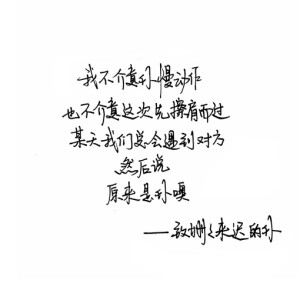 我不介意你慢动作
也不介意这次先擦肩而过
某天我们总会遇到对方
然后说
原来是你噢
——致姗姗来迟的你